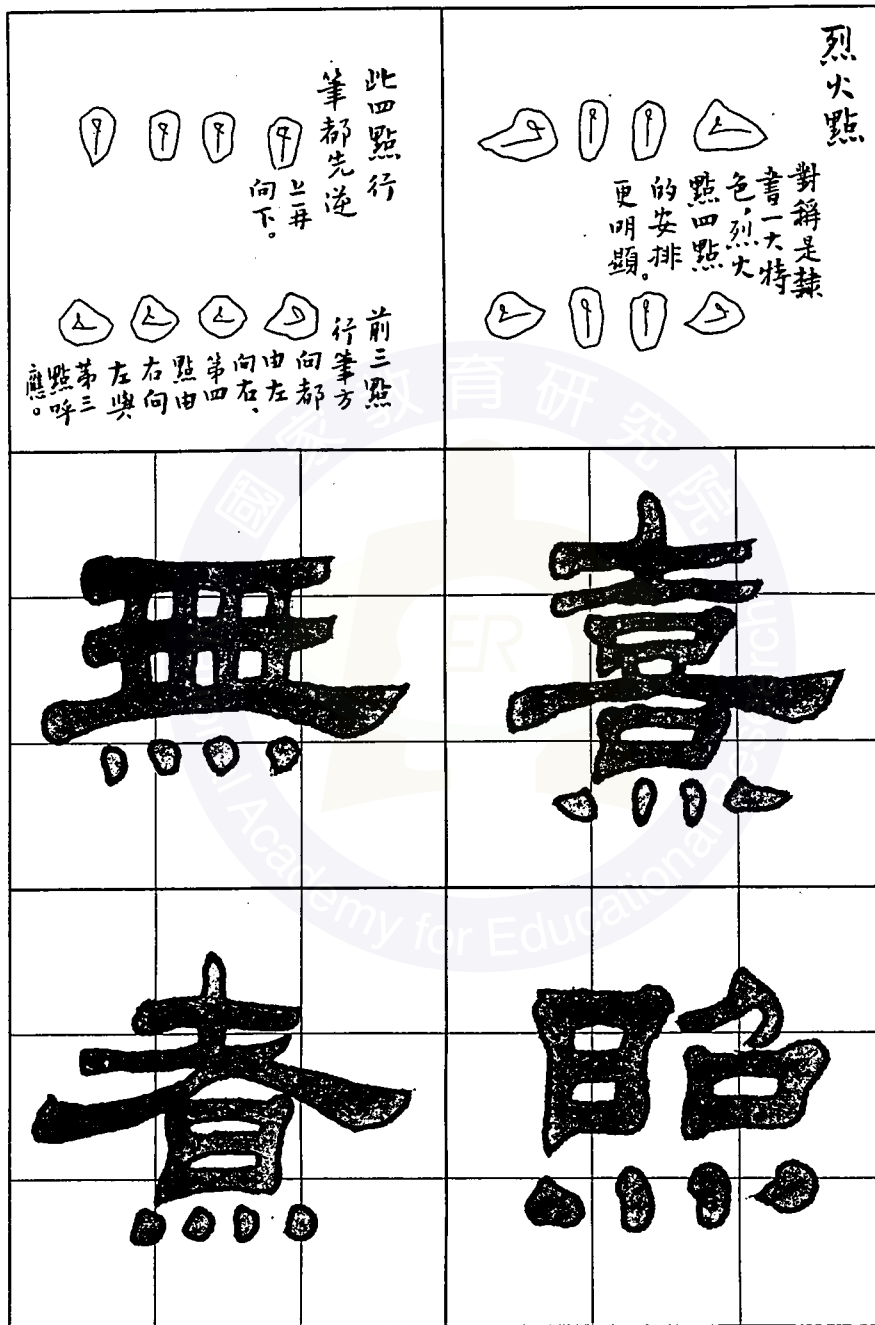 烈火點
對稱是隸
書一大特
色，烈火
點四點
的安排
更明顯。
此四點行
筆都先逆
上再
向下。
前三點
行筆方
向都
由左
向右、
第四
點由
右向
左與
第三
點呼
應。
熹
無
照
煮
國家教育研究院
National Academy for Educational Research
ER